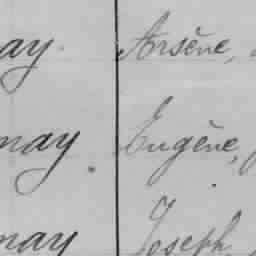 ay Arsène,
nay. Eugène,
nay Joseph